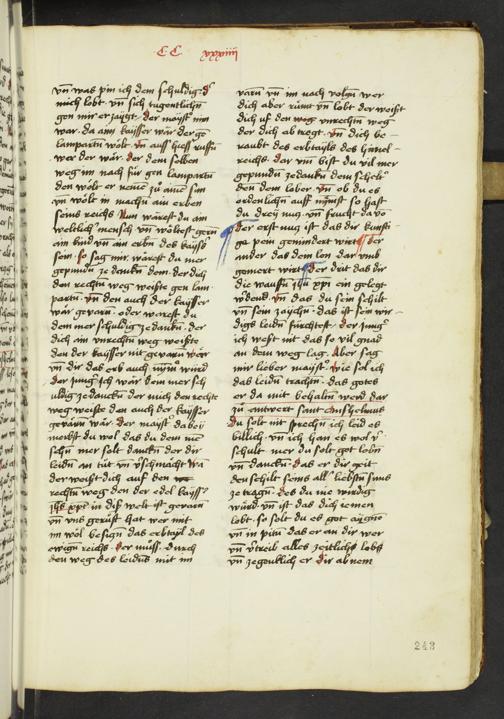 CC xxxiiij
vn̄ was pin ich dem schuldig d
mich lobt vn̄ sich tugentlichn̄
gen mir erzaygt der mayst̄ nim
war da ain kaysser wär der gē
lamparten wölt vn̄ auss hiess ruffn̄
wer der wär der dem selben
weg im nach für gen lamparten
den wolt er neme zu aine sun
vn̄ wölt in machn̄ ain erben
seins reichs Nun wärest du ain
weltlich mensch vn̄ wöltest gern
ain kind vn̄ ain erbn̄ des kayss̄
sein so sag mir wärest du mer
gepundn̄ ze danckn̄ dem der dich
den rechtn̄ weg weiste gen lam
partn̄ vn̄ den auch der kaysser
wär gevarn oder werest du
dem mer schuldig ze danckn̄ der
dich ain vnrechtn̄ weg weiste
den der kaysser nit gevarn wär
vn̄ dir das erb auch
der jung Ich wär dem mer sch
uldig ze danckn̄ der mich den rechtē
weg weiste den auch der kaysser
gevarn wär Der mayst̄ da bey
merkst du wol das du dem men
schn̄ mer solt danckn̄ der dir
leidn̄ an tut vn̄ v̄schmächt Wa
der weist dich auf den
rechtn̄ weg den der edel kayss̄
ihs xp̄s in diß welt ist gevarn
vn̄ vns gerüst hat wer mit
im wöl besiczn̄ das erbtayl des
ewign̄ reichs Der muss durch
den weg des leidens mit im
varn vn̄ im nach volgn̄ wer
dich aber rümt vn̄ lobt der weist
dich uf den weg vnrechtn̄ weg
der dich ab tregt vn̄ dich be
raubt des erbtayls des himel
reichs dar vm̄ bist du vil mer
gepundn̄ ze danckn̄ dem schelt̄
den dem lober Vn̄ ob du es
ordenlichn̄ auff nimst so hast
du dreÿ nucz vn̄ frucht da vō
Der erst nucz ist das dir künfti
ge pein gemindert wirt der
ander das dem lon dar vmb
gemert wirt Der drit das dir
die waufn̄ ihu xp̄i ein gelegt
w̄dent Vn̄ das du sein schilt
vn̄ sein zaychn̄ das ist sein wir
digs leiden fürchtest der jung
ich west nit das so vil gnad
an dem weg lag Aber sag
mir lieber mayst̄ Wie sol ich
das leidn̄ trachtn̄ das gotes
er da mit behaltn̄ werd dar
zu antwert sant Anshelmus
Du solt nit sprechn̄ ich leid es
billich vn̄ ich han es wol v̄
schult mer du solt got lobn̄
vn̄ danckn̄ das er dir geit
den schilt seins all liebstn̄ suns
ze tragn̄ des du nie wirdig
würd vn̄ ist das dich iemen
lobt so solt du es got aygnē
vn̄ in pitn̄ das er an dir wer
vn̄ v̄treib alles zeitlichs lobs
vn̄ zegenklich er dir ab nem
243